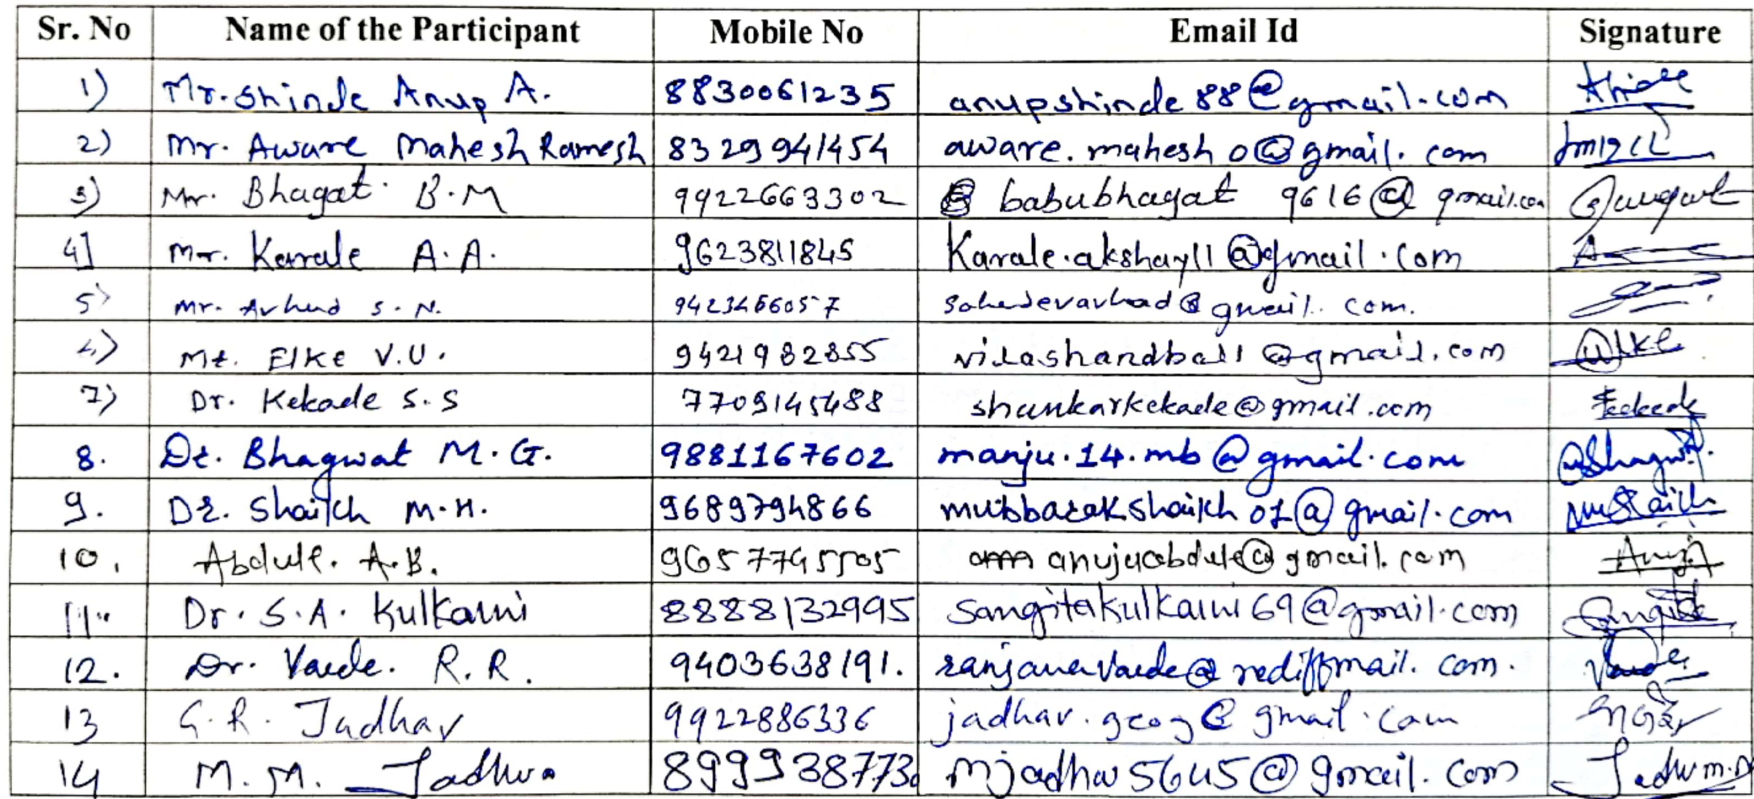 Sr. No Name of the Participant Mobile No Email Id Signature
1) Mr. Shinde Anup A. 8830061235 anupshinde88@gmail.com
2) Mr. Aware Mahesh Ramesh 8329941454 aware.mahesh0@gmail.com
3) Mr. Bhagat B.M 9922663302 babubhagat 9616@gmail.com
4] Mr. Karale A.A. 9623811845 Karale.akshay11@gmail.com
5) Mr. Avhad S.N. sahadevavhad@gmail.com.
Mr. Elke V.U. 9421982855 vilashandball@gmail.com
7) Dr. Kekade S.S 7709145488 shankarkekade@gmail.com
8. Dr. Bhagwat M.G. 9881167602 manju.14.mb@gmail.com
9. Dr. Shaikh M.H. 9689794866 mubbarakshaikh01@gmail.com
10. Abdule. A.B. 9657745505 anujaabdule@gmail.com
11. Dr. S.A. Kulkarni 8888132995 sangitakulkarni69@gmail.com
12. Dr. Varde. R.R. 9403638191. ranjanavarde@rediffmail.com.
13 G.R. Jadhav 9922886336 jadhav.geog@gmail.com
14 M.M. Jadhav 8999387730 mjadhav5645@gmail.com